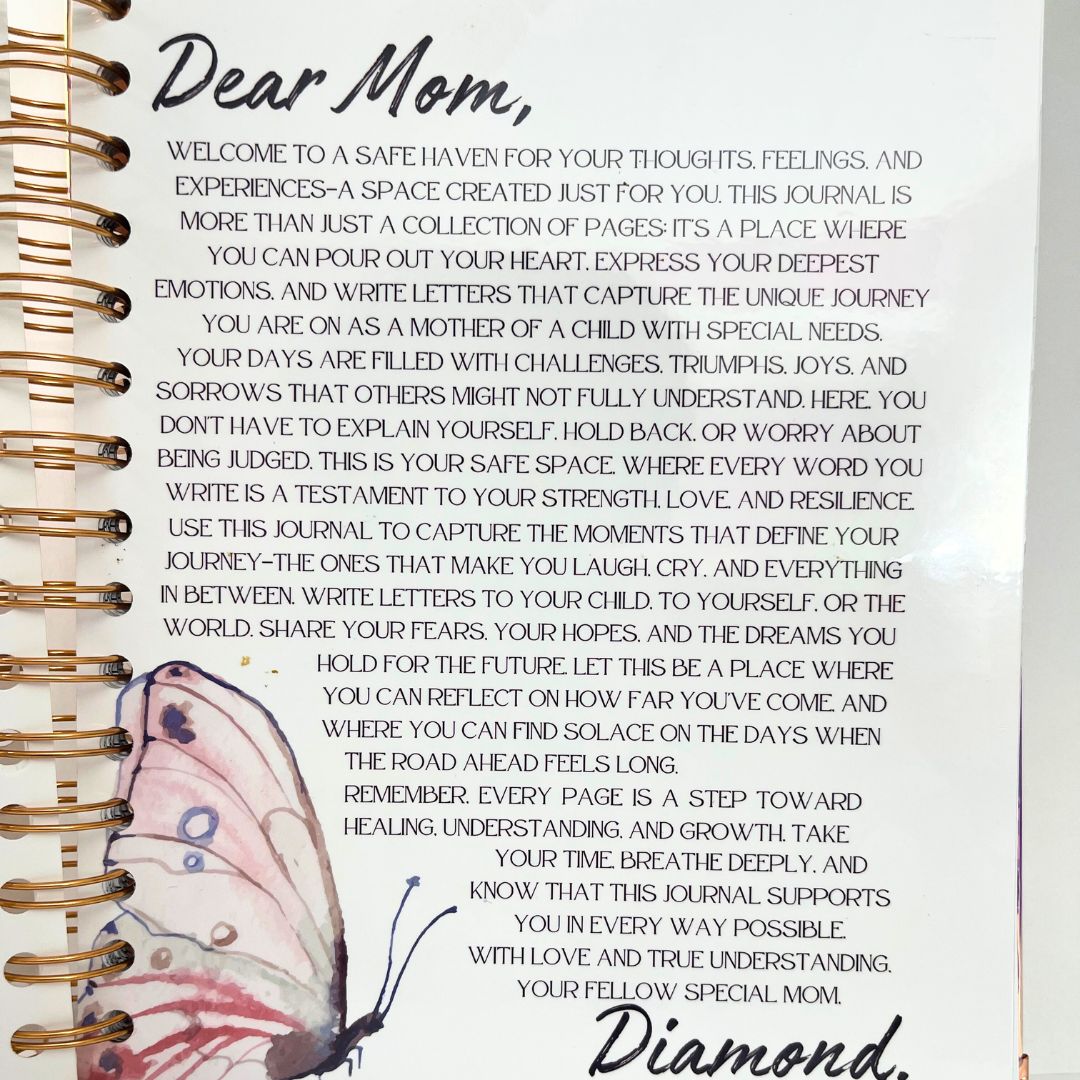 Dear Mom,
WELCOME TO A SAFE HAVEN FOR YOUR THOUGHTS, FEELINGS, AND
EXPERIENCES—A SPACE CREATED JUST FOR YOU. THIS JOURNAL IS
MORE THAN JUST A COLLECTION OF PAGES; IT'S A PLACE WHERE
YOU CAN POUR OUT YOUR HEART, EXPRESS YOUR DEEPEST
EMOTIONS, AND WRITE LETTERS THAT CAPTURE THE UNIQUE JOURNEY
YOU ARE ON AS A MOTHER OF A CHILD WITH SPECIAL NEEDS.
YOUR DAYS ARE FILLED WITH CHALLENGES, TRIUMPHS, JOYS, AND
SORROWS THAT OTHERS MIGHT NOT FULLY UNDERSTAND. HERE, YOU
DON'T HAVE TO EXPLAIN YOURSELF, HOLD BACK, OR WORRY ABOUT
BEING JUDGED. THIS IS YOUR SAFE SPACE, WHERE EVERY WORD YOU
WRITE IS A TESTAMENT TO YOUR STRENGTH, LOVE, AND RESILIENCE.
USE THIS JOURNAL TO CAPTURE THE MOMENTS THAT DEFINE YOUR
JOURNEY—THE ONES THAT MAKE YOU LAUGH, CRY, AND EVERYTHING
IN BETWEEN. WRITE LETTERS TO YOUR CHILD, TO YOURSELF, OR THE
WORLD. SHARE YOUR FEARS, YOUR HOPES, AND THE DREAMS YOU
HOLD FOR THE FUTURE. LET THIS BE A PLACE WHERE
YOU CAN REFLECT ON HOW FAR YOU'VE COME, AND
WHERE YOU CAN FIND SOLACE ON THE DAYS WHEN
THE ROAD AHEAD FEELS LONG.
REMEMBER, EVERY PAGE IS A STEP TOWARD
HEALING, UNDERSTANDING, AND GROWTH. TAKE
YOUR TIME, BREATHE DEEPLY, AND
KNOW THAT THIS JOURNAL SUPPORTS
YOU IN EVERY WAY POSSIBLE.
WITH LOVE AND TRUE UNDERSTANDING,
YOUR FELLOW SPECIAL MOM,
Diamond.